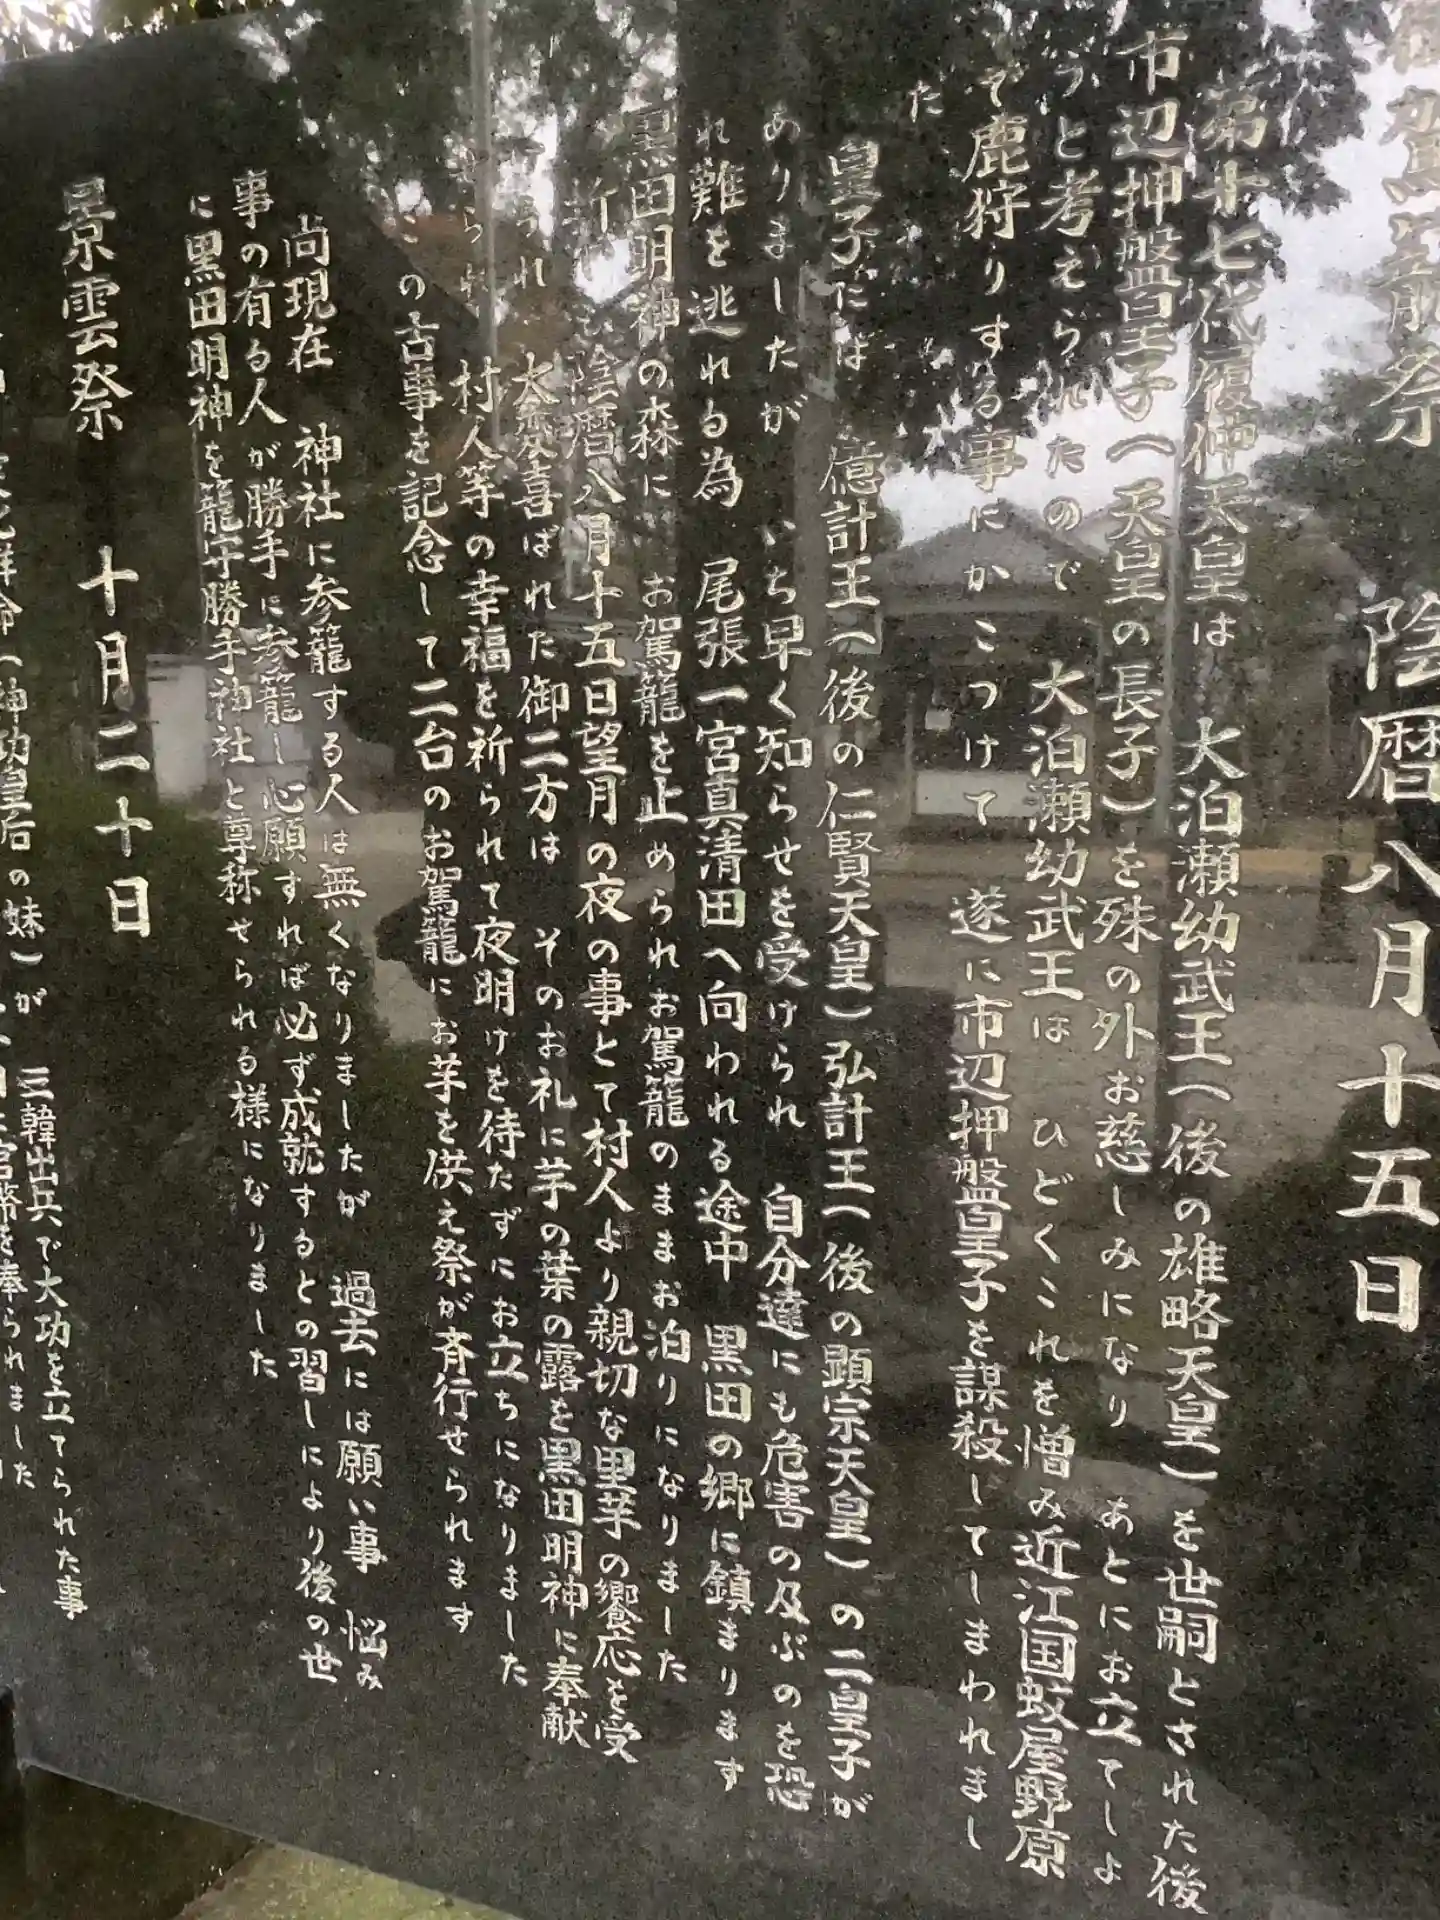 御駕籠祭　陰暦八月十五日
第十七代履仲天皇は　大泊瀬幼武王（後の雄略天皇）を世嗣とされた後
市辺押盤皇子（天皇の長子）を殊の外お慈しみになり　あとにお立てしよ
うと考えられたので　大泊瀬幼武王は　ひどくこれを憎み近江国蚊屋野原
で鹿狩りする事にかこつけて　遂に市辺押盤皇子を謀殺してしまわれまし
た
皇子には　億計王（後の仁賢天皇）弘計王（後の顕宗天皇）の二皇子が
ありましたが　いち早く知らせを受けられ　自分達にも危害の及ぶのを恐
れ難を逃れる為　尾張一宮真清田へ向われる途中　黒田の郷に鎮まります
黒田明神の森に　お駕籠を止められお駕籠のままお泊りになりました
折しも陰暦八月十五日望月の夜の事とて村人より親切な里芋の饗応を受
けられ　大変喜ばれた御二方は　そのお礼に芋の葉の露を黒田明神に奉献
せられ　村人等の幸福を祈られて夜明けを待たずにお立ちになりました
この古事を記念して二台のお駕籠にお芋を供え祭が斉行せられます
尚現在　神社に参籠する人は無くなりましたが　過去には願い事　悩み
事の有る人が勝手に参籠し心願すれば必ず成就するとの習しにより後の世
に黒田明神を籠守勝手神社と尊称せられる様になりました
景雲祭　十月二十日
（神功皇后の妹）が　三韓出兵で大功を立てられた事
官幣を奉られました